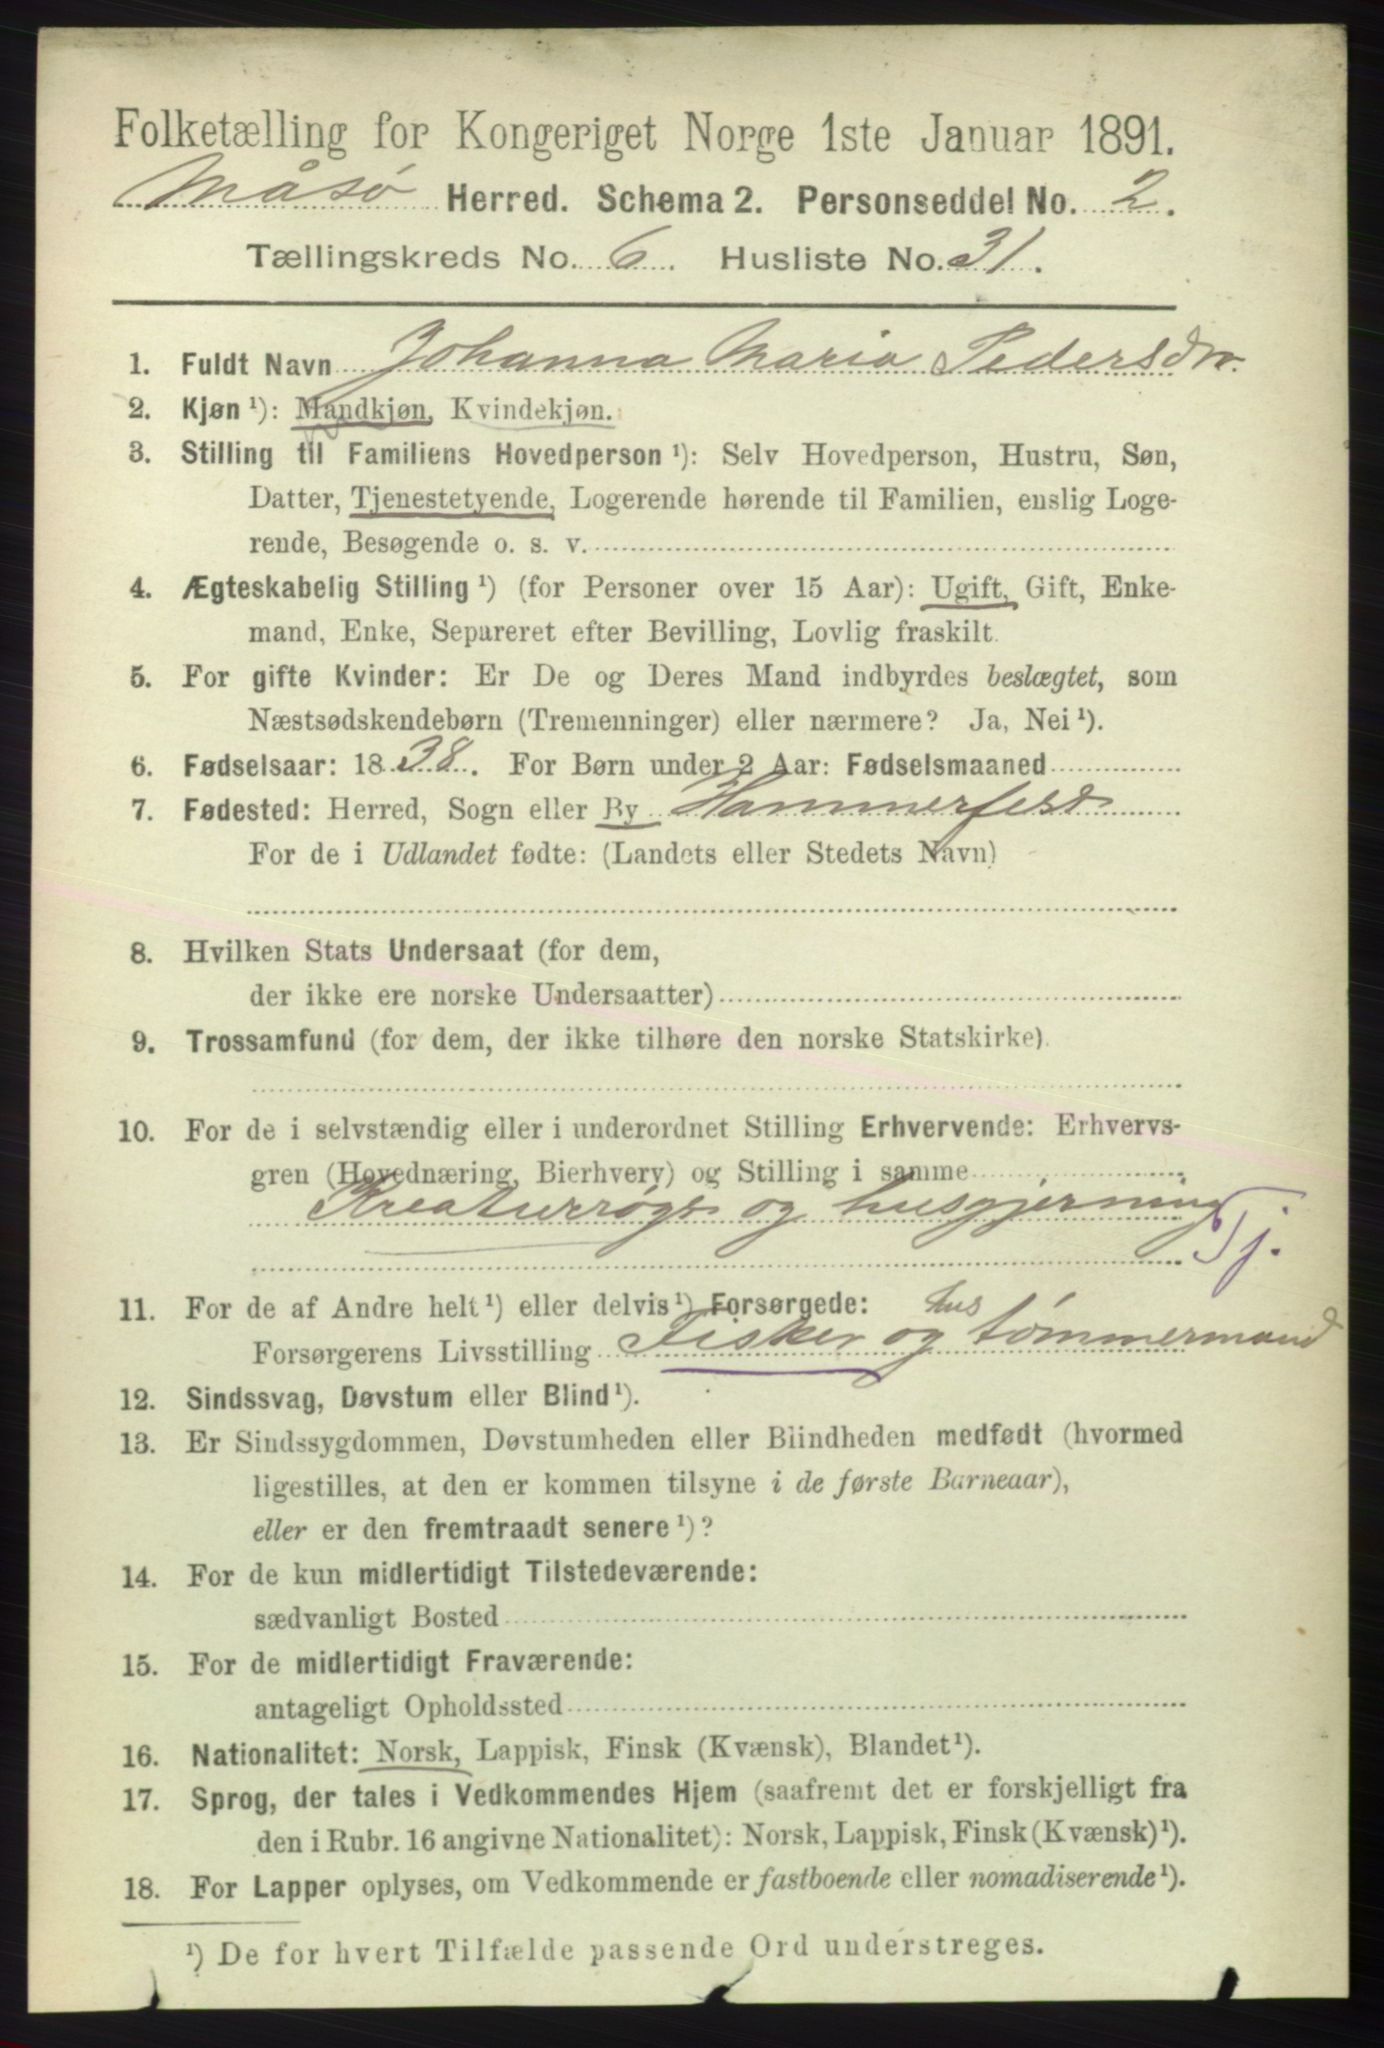 Folketælling for Kongeriget Norge 1ste Januar 1891.
Måsø Herred. Schema 2. Personseddel No. 2.
Tællingskreds No. 6. Husliste No. 31.
1. Fuldt Navn Johanna Maria Pedersdtr.
2. Kjøn ¹): Mandkjøn, Kvindekjøn.
3. Stilling til Familiens Hovedperson ¹): Selv Hovedperson, Hustru, Søn,
Datter, Tjenestetyende, Logerende hørende til Familien, enslig Loge-
rende, Besøgende o. s. v.
4. Ægteskabelig Stilling ¹) (for Personer over 15 Aar): Ugift, Gift, Enke-
mand, Enke, Separeret efter Bevilling, Lovlig fraskilt.
5. For gifte Kvinder: Er De og Deres Mand indbyrdes beslægtet, som
Næstsødskendebørn (Tremenninger) eller nærmere? Ja, Nei ¹).
6. Fødselsaar: 1838. For Børn under 2 Aar: Fødselsmaaned
7. Fødested: Herred, Sogn eller By Hammerfest
For de i Udlandet fødte: (Landets eller Stedets Navn)
8. Hvilken Stats Undersaat (for dem,
der ikke ere norske Undersaatter)
9. Trossamfund (for dem, der ikke tilhøre den norske Statskirke).
10. For de i selvstændig eller i underordnet Stilling Erhvervende: Erhvervs-
gren (Hovednæring, Bierhverv) og Stilling i samme
Kreaturrøgt og husgjerning
Tj.
11. For de af Andre helt ¹) eller delvis ¹) Forsørgede: hus
Forsørgerens Livsstilling Fisker og tømmermand
12. Sindssvag, Døvstum eller Blind ¹).
13. Er Sindssygdommen, Døvstumheden eller Blindheden medfødt (hvormed
ligestilles, at den er kommen tilsyne i de første Barneaar),
eller er den fremtraadt senere ¹)?
14. For de kun midlertidigt Tilstedeværende:
sædvanligt Bosted
15. For de midlertidigt Fraværende:
antageligt Opholdssted
16. Nationalitet: Norsk, Lappisk, Finsk (Kvænsk), Blandet ¹).
17. Sprog, der tales i Vedkommendes Hjem (saafremt det er forskjelligt fra
den i Rubr. 16 angivne Nationalitet): Norsk, Lappisk, Finsk (Kvænsk) ¹).
18. For Lapper oplyses, om Vedkommende er fastboende eller nomadiserende ¹).
¹) De for hvert Tilfælde passende Ord understreges.